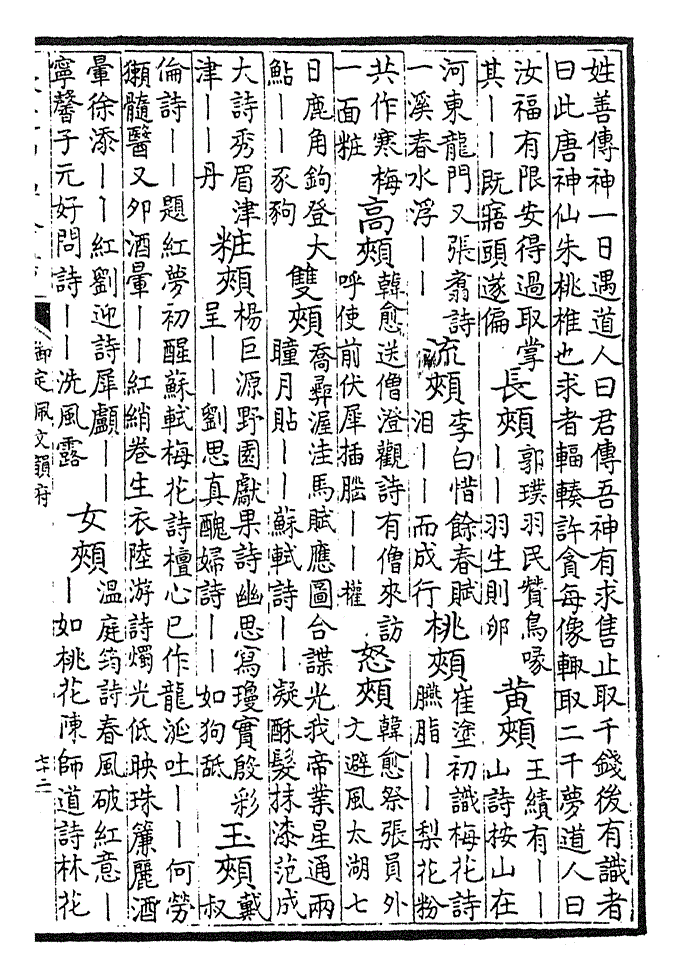 姓善傳神一日遇道人曰君傳吾神有求售止取千錢後有識者
曰此唐神仙朱桃椎也求者輻輳許貪每像輙取二千夢道人曰
汝福有限安得過取掌
其丨丨既寤頭遂偏
長頰
郭璞羽民賛鳥喙
丨丨羽生則卵
黄頰
王績有丨丨
山詩按山在
河東龍門又張翥詩
一溪春水浮丨丨
流頰
李白惜餘春賦
泪丨丨而成行
桃頰
崔塗初識梅花詩
臙脂丨丨梨花粉
共作寒梅
一面粧
高頰
韓愈送僧澄觀詩有僧來訪
呼使前伏犀插腦丨丨權
怒頰
韓愈祭張員外
文避風太湖七
日鹿角鉤登大
鮎丨丨豕豞
雙頰
喬彛渥洼馬賦應圖合諜光我帝業星通兩
瞳月貼丨丨蘇軾詩丨丨凝酥髮抹漆范成
大詩秀眉津
津丨丨丹
粧頰
楊巨源野園獻果詩幽思寫瓊實殷彩
呈丨丨劉思真醜婦詩丨丨如狗舐
玉頰
戴
叔
倫詩丨丨題紅夢初醒蘇軾梅花詩檀心已作龍涎吐丨丨何勞
獺髓醫又卯酒暈丨丨紅綃卷生衣陸游詩燭光低映珠簾麗酒
暈徐添丨丨紅劉迎詩犀顱丨丨
寧馨子元好問詩丨丨洗風露
女頰
温庭筠詩春風破紅意丨
丨如桃花陳師道詩林花
御定佩文韻府